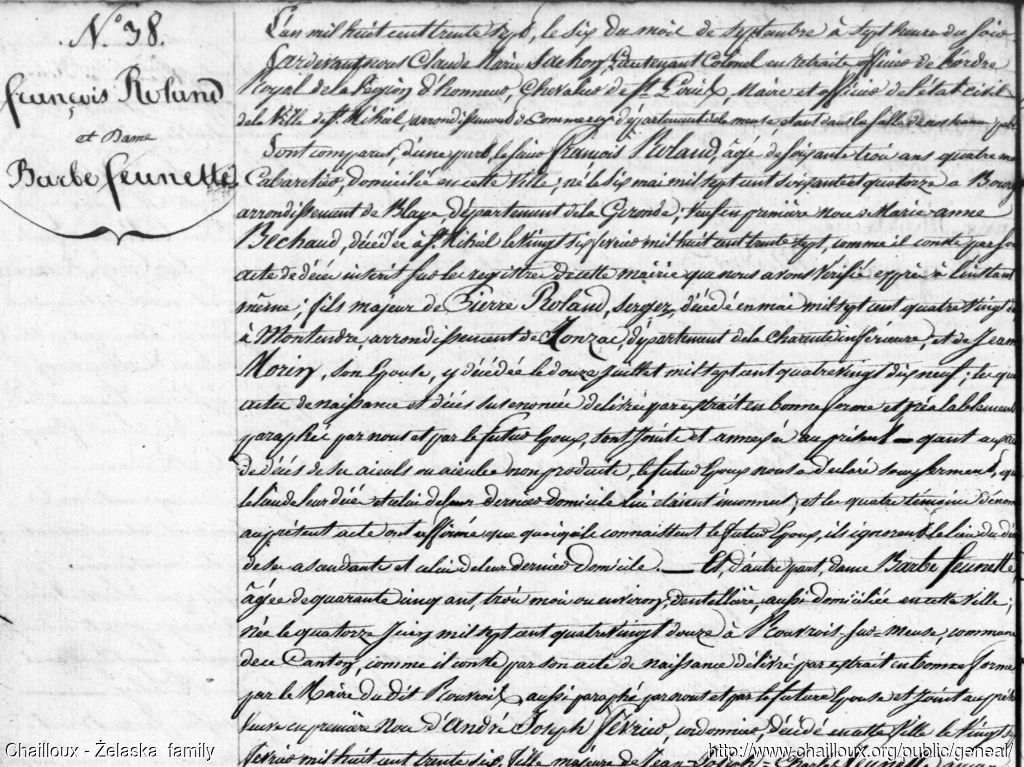 N.° 38.
François Roland
et Dame
Barbe Jeunette
L'an mil huit cent trente sept, le six du mois de septembre à sept heures du soir
Pardevant nous Claude Marie Sachon, Lieutenant Colonel en retraite officier de l'ordre
Royal de la Légion d'honneur, Chevalier de St. Louis, Maire et officier de l'état civil
de la Ville de St. Mihiel, arrondissement de Commercy, département de la meuse, étant dans la salle de
Sont comparus, d'une part, le sieur François Roland, âgé de soixante trois ans quatre mois
Cabaretier, domicilié en cette Ville; né le six mai mil sept cent soixante et quatorze à
arrondissement de Blaye, département de la Gironde; veuf en première noce de Marie anne
Bechaud, décédée à St. Mihiel le vingt six février mil huit cent trente sept, comme il conste par son
acte de décès inscrit sur les registres de cette mairie que nous avons vérifié exprès à l'instant
même; fils majeur de Pierre Roland, Serger, décédé en mai mil sept cent quatre vingt
à Montendre, arrondissement de Jonzac, département de la Charente inférieure, et de Jeanne
Morin, son épouse, y décédée le douze juillet mil sept cent quatre vingt dix neuf; les
actes de naissance et décès sus énoncés délivrés par extrait en bonne forme et préalablement
paraphés par nous et par le futur époux, sont joints et annexés au présent — quant aux
de décès de ses aïeuls ou aïeules non produits, le futur époux nous a déclaré sous serment, que
le lieu de leur décès et celui de leur dernier domicile lui étaient inconnus; et les quatre témoins
au présent acte ont affirmé que quoiqu'ils connaissent le futur époux, ils ignorent le lieu du décès
de ses ascendants et celui de leur dernier domicile. — Et, d'autre part, dame Barbe Jeunette,
âgée de quarante cinq ans, trois mois ou environ, dentellière, aussi domiciliée en cette Ville;
née le quatorze Juin mil sept cent quatre vingt douze à Rouvrois-sur-Meuse, commune
de ce Canton, comme il conste par son acte de naissance délivré par extrait en bonne forme
par le Maire du dit Rouvrois, aussi paraphé par nous et par la future épouse et joint au
veuve en première noce d'André Joseph Février, cordonnier, décédé en cette Ville le vingt
février mil huit cent trente six, fille majeure de Jean-Joseph-Charles Jeunette,
Chailloux - Żelaska family
http://www.chailloux.org/public/geneal/